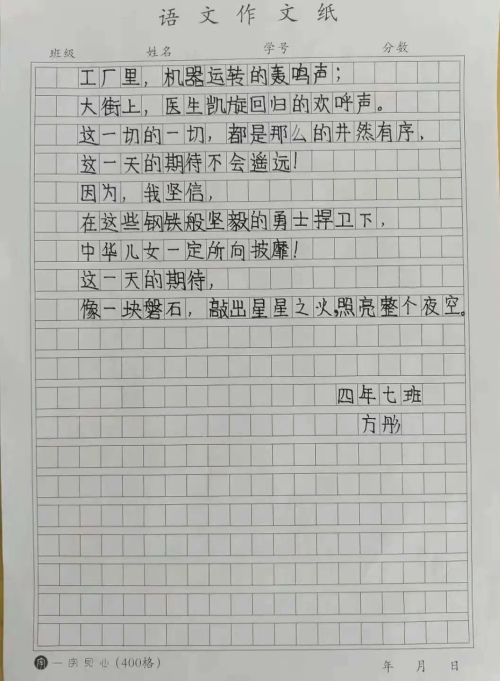 语文作文纸
班级 姓名 学号 分数
工厂里，机器运转的轰鸣声；
大街上，医生凯旋回归的欢呼声。
这一切的一切，都是那么的井然有序，
这一天的期待不会遥远！
因为，我坚信，
在这些钢铁般坚毅的勇士捍卫下，
中华儿女一定所向披靡！
这一天的期待，
像一块磐石，敲出星星之火，照亮整个夜空。
四年七班
方彤
(400格) 年 月 日